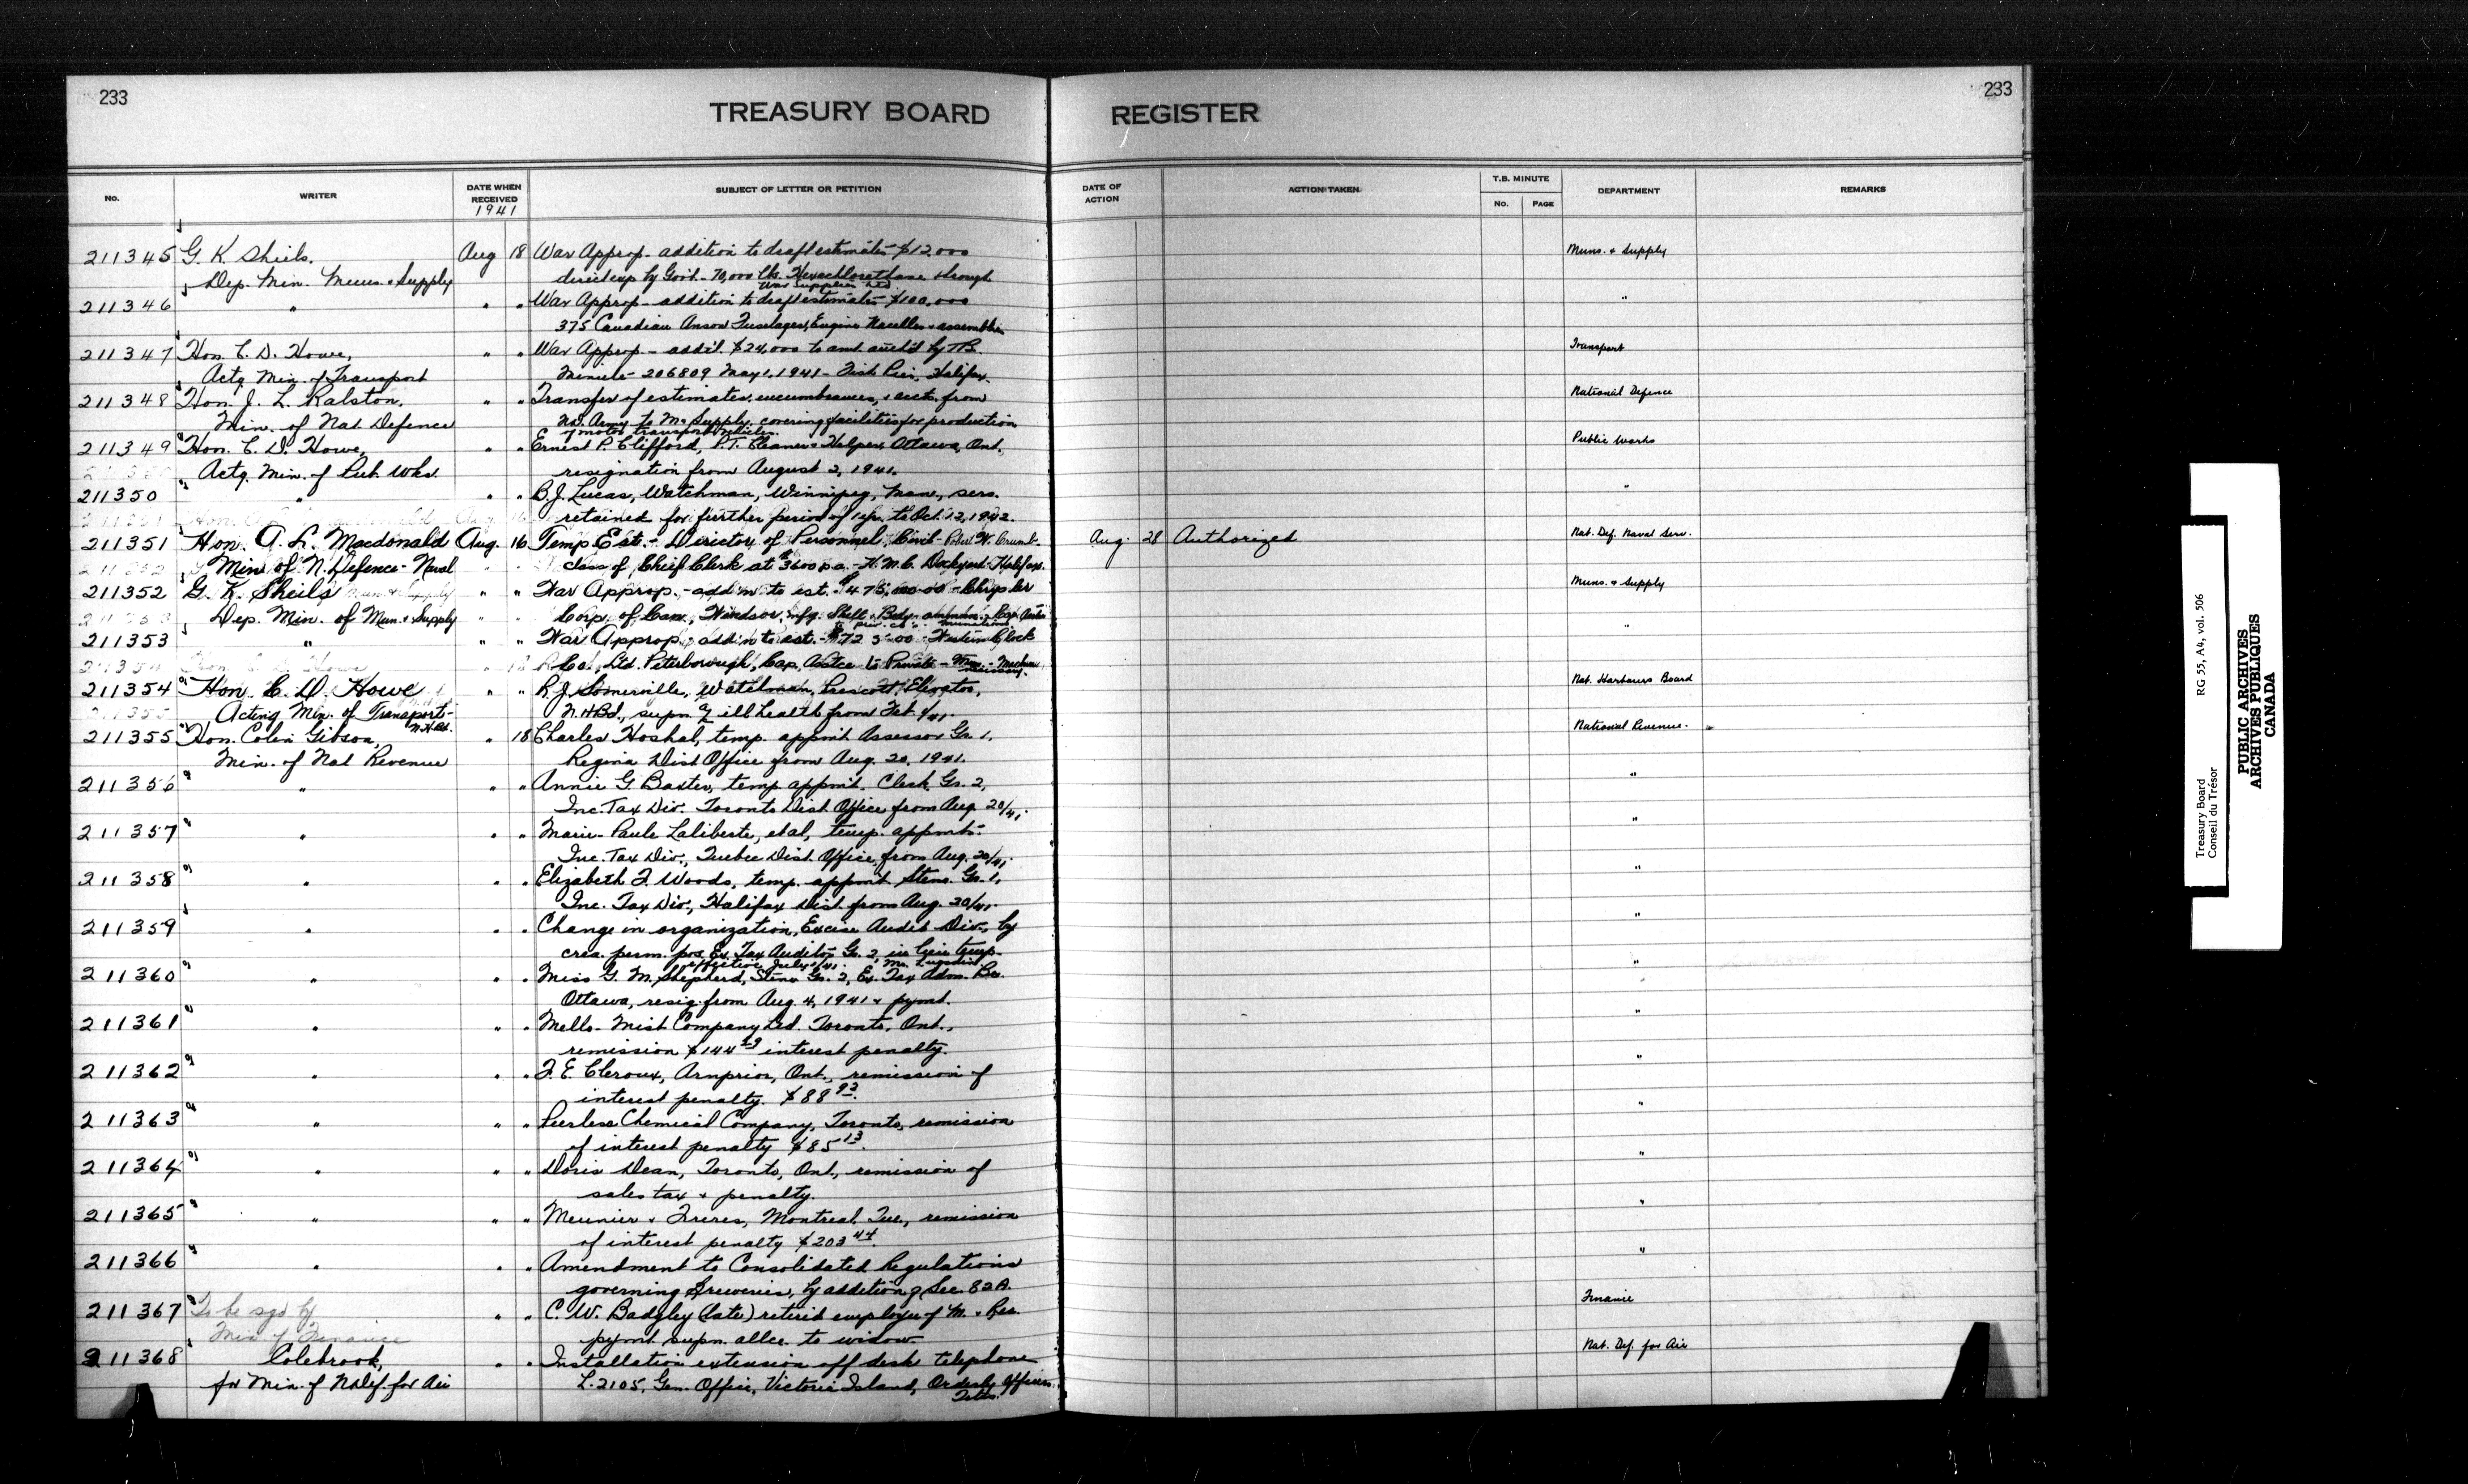 233
233
TREASURY BOARD REGISTER
No. WRITER DATE WHEN RECEIVED 1941 SUBJECT OF LETTER OR PETITION DATE OF ACTION ACTION TAKEN T.B. MINUTE No. PAGE DEPARTMENT REMARKS
211345 G. K. Sheils. Aug 18 War Approp - addition to draft estimates - $12,000 Muns. & Supply
Dep. Min. Muns. & Supply by Gov't - 70,000 lbs. Hexachlorethane through
War Supplies Ltd.
211346 " " " War Approp - addition to draft estimates $100,000 "
375 Canadian Anson Fuselages, Engine Nacelles & assemblies
211347 Hon. C. D. Howe, " " War Approp - add'l. $24,000 to amt. auth'd by TB. Transport
Actg Min. of Transport Minute - 206809 May 1, 1941 - Fish Pier, Halifax.
211348 Hon. J. L. Ralston, " " Transfer of estimates, encumbrances, & accts. from National Defence
Min. of Nat Defence N.D. Army to M & Supply covering facilities for production
of motor transport vehicles.
211349 Hon. C. D. Howe, " " Ernest P. Clifford, P.T. Cleaner & Helper, Ottawa, Ont. Public Works
Actg. Min. of Pub. Wks. resignation from August 2, 1941.
211350 " " " B. J. Lucas, Watchman, Winnipeg, Man., sers. "
retained for further period of 1 yr. to Oct. 12, 1942.
211351 Hon. A. L. Macdonald Aug. 16 Temp. Est. - Director of Personnel, Civil - Robert W. Aug. 28 Authorized Nat. Def. Naval Serv.
Min of N. Defence - Naval class of Chief Clerk at $3600 p.a. - H.M.C. Dockyard - Halifax.
211352 G. K. Sheils " " War Approp. - add'n to est. - Chrysler Muns. & Supply
Dep. Min. of Mun. & Supply Corp. of Can., Windsor, mfg. Shell
211353 " " " War Approp - add'n to est. - Western Clock "
Co., Ltd. Peterborough, Cap. Ass'tce to Private
211354 Hon. C. D. Howe " " R. J. Somerville, Watchman, Prescott Elevator, Nat. Harbours Board
Acting Min. of Transport - N.H.Bd. N.H.Bd., supn. ill health from
211355 Hon. Colin Gibson, " 18 Charles Hoshal, temp. appmt Assessor Gr. 1, National Revenue.
Min. of Nat Revenue Regina Dist Office from Aug. 20, 1941.
211356 " " " Annie G. Baxter, temp appmt. Clerk Gr. 2, "
Inc. Tax Div. Toronto Dist Office from Aug. 20/41.
211357 " " " Marie-Paule Laliberte, et al, temp. appmts. "
Inc. Tax Div., Quebec Dist. Office, from Aug. 20/41.
211358 " " " Elizabeth F. Woods, temp. appmt Steno. Gr. 1, "
Inc. Tax Div., Halifax Dist. from Aug. 20/41.
211359 " " " Change in organization, Excise Audit Div., by "
crea. perm. pos. Ex. Tax Auditor Gr. 2 in lieu temp.
effective July 1/41. Mr. Lugsdin.
211360 " " " Miss G. M. Shepherd, Steno Gr. 2, Ex. Tax Adm. Br. "
Ottawa, resig. from Aug. 4, 1941 & pymt.
211361 " " " Mello-Mist Company Ltd. Toronto, Ont., "
remission $144.29 interest penalty.
211362 " " " F. E. Cleroux, Arnprior, Ont., remission of "
interest penalty. $88.93.
211363 " " " Peerless Chemical Company, Toronto, remission "
of interest penalty $85.13.
211364 " " " Doris Dean, Toronto, Ont., remission of "
sales tax & penalty.
211365 " " " Meunier & Freres, Montreal, Que., remission "
of interest penalty $203.44.
211366 " " " Amendment to Consolidated Regulations "
governing Breweries, by addition of Sec. 82A.
211367 To be sgd by " " C. W. Badgley (late) retired employee of M. & Res. Finance
Min of Finance pymt supn. allce. to widow.
211368 Colebrook, " " Installation extension off desk telephone Nat. Def. for Air
for Min. of N Def. for Air L. 2105, Gen. Office, Victoria Island, Orderly Officers
Treasury Board
Conseil du Trésor
RG 55, A4, vol. 506
PUBLIC ARCHIVES
ARCHIVES PUBLIQUES
CANADA